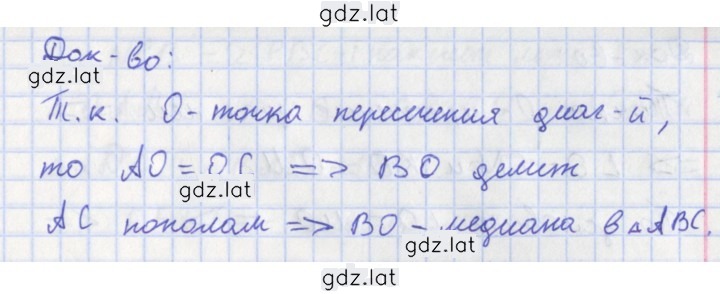 gdz.lat
Док-во:
gdz.lat
Т.к. О-точка пересечения диаг-й,
то АО=ОС => ВО делит
gdz.lat
АС пополам => ВО-медиана в△АВС.
gdz.lat
gdz.lat